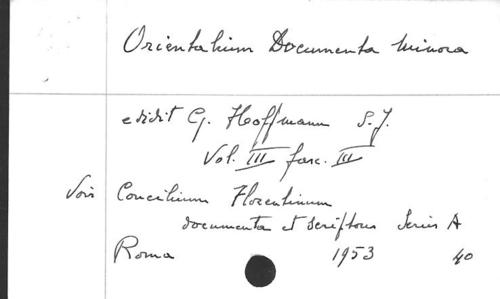 Orientalium Documenta minora
edidit G. Hoffmann S.J.
Vol. III fasc. III
Voir Concilium Florentinum
documenta et scriptores Series A
Roma 1953 40